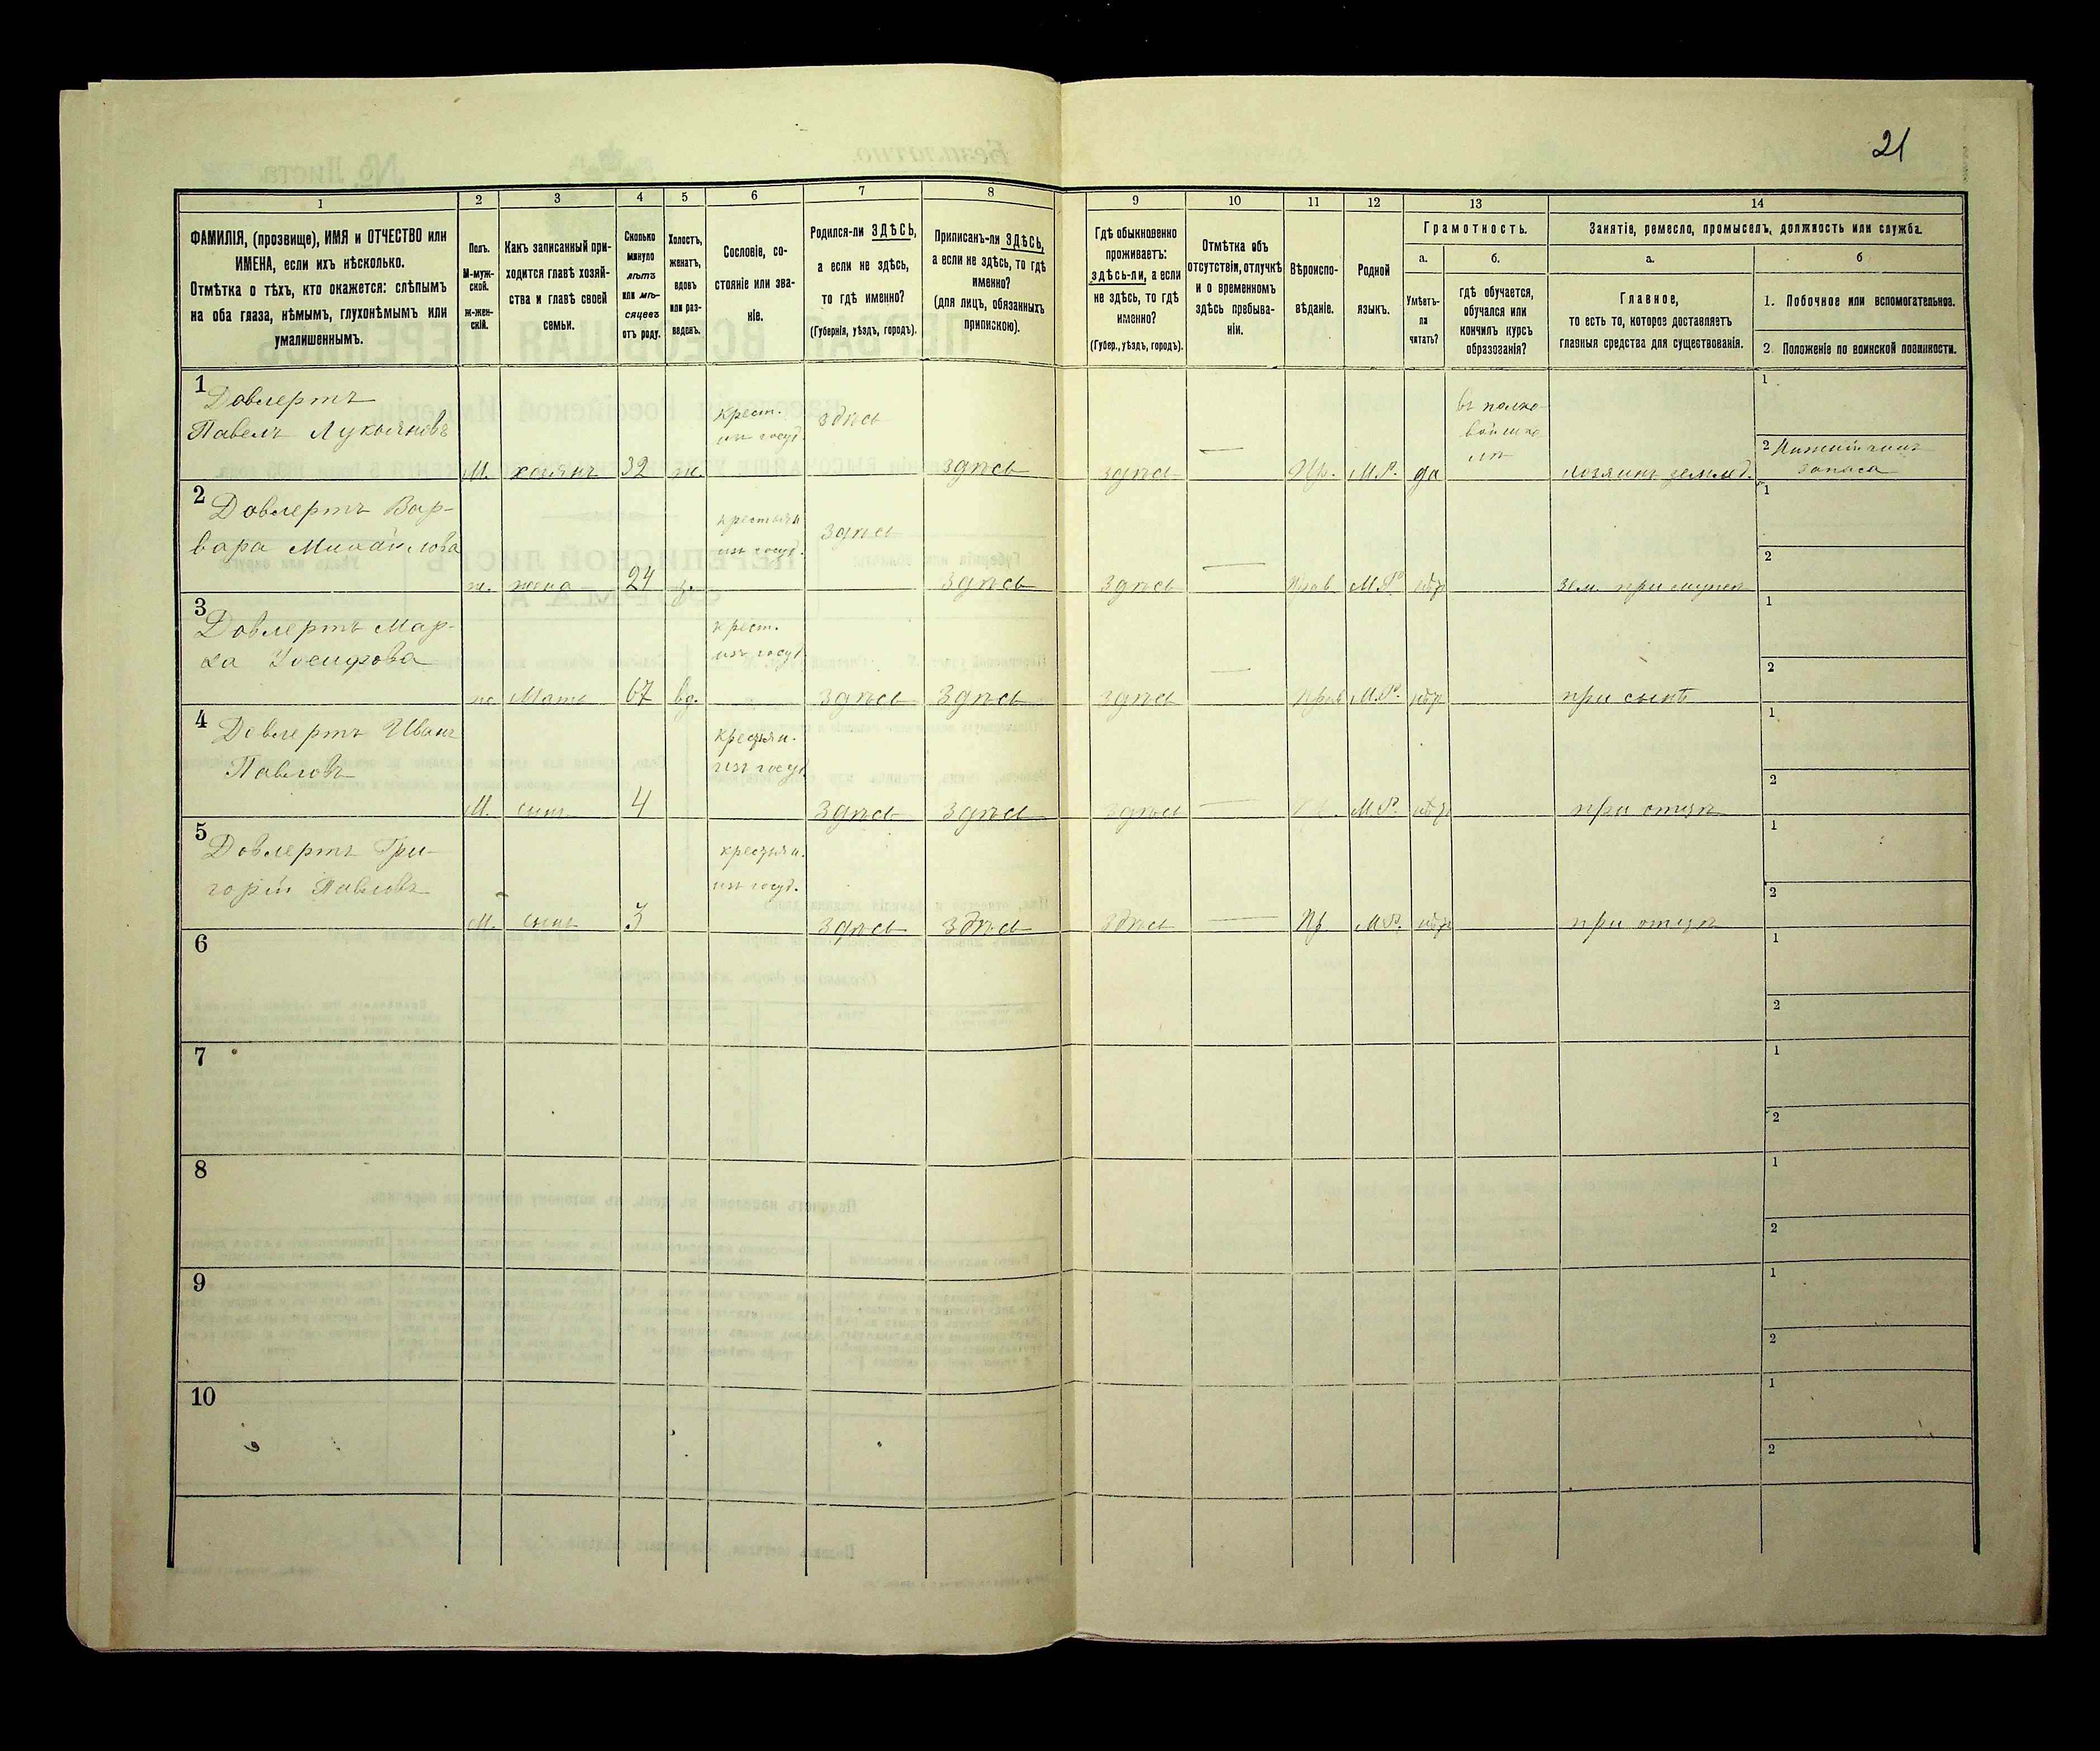 21
1
2
3
4
5
6
7
8
9
10
11
12
13
14
ФАМИЛІЯ, (прозвище), ИМЯ и ОТЧЕСТВО или
ИМЕНА, если ихъ нѣсколько.
Отмѣтка о тѣхъ, кто окажется: слѣпымъ
на оба глаза, нѣмымъ, глухонѣмымъ или
умалишеннымъ.
Полъ.
М-муж-
ской.
ж-жен-
скій.
Какъ записанный при-
ходится главѣ хозяй-
ства и главѣ своей
семьи.
Сколько
минуло
лѣтъ
или мѣ-
сяцевъ
отъ роду.
Холостъ,
женатъ,
вдовъ
или раз-
веденъ.
Сословіе, со-
стояніе или зва-
ніе.
Родился-ли ЗДѢСЬ,
а если не здѣсь,
то гдѣ именно?
(Губернія, уѣздъ, городъ).
Приписанъ-ли ЗДѢСЬ,
а если не здѣсь, то гдѣ
именно?
(для лицъ, обязанныхъ
припискою).
Гдѣ обыкновенно
проживаетъ:
здѣсь-ли, а если
не здѣсь, то гдѣ
именно?
(Губер., уѣздъ, городъ).
Отмѣтка объ
отсутствіи, отлучкѣ
и о временномъ
здѣсь пребыва-
ніи.
Вѣроиспо-
вѣданіе.
Родной
языкъ.
Грамотность.
а.
Умѣетъ-
ли
читать?
б.
гдѣ обучается,
обучался или
кончилъ курсъ
образованія?
Занятіе, ремесло, промыселъ, должность или служба.
а.
Главное,
то есть то, которое доставляетъ
главныя средства для существованія.
б
1. Побочное или вспомогательное.
2. Положеніе по воинской повинности.
1
Довлертъ
Павелъ Лукьяновъ
М.
32
ж.
крест.
изъ госуд.
здѣсь
здѣсь
здѣсь
—
Пр.
М.Р.
да
въ полко
1
хозяинъ землед.
2 Нижній чинъ
запаса
2
Довлертъ Вар-
вара Михайлова
ж.
жена
24
з.
крестьян
изъ госуд.
здѣсь
здѣсь
здѣсь
—
Прав.
М.Р.
нѣтъ
зем. при мужѣ
1
2
3
Довлертъ Мар-
Іосифова
ж.
Мать
67
вд.
крест.
изъ госуд.
здѣсь
здѣсь
здѣсь
—
Прав
М.Р.
нѣтъ
при сынѣ
1
2
4
Довлертъ Иванъ
Павловъ
М.
сынъ
4
крестьян.
изъ госуд.
здѣсь
здѣсь
здѣсь
—
М.Р.
нѣтъ
при отцѣ
1
2
5
Довлертъ Гри-
горій Павловъ
М.
сынъ
3
крестьян.
изъ госуд.
здѣсь
здѣсь
здѣсь
—
Пр
М.Р.
нѣтъ
при отцѣ
1
2
6
1
2
7
1
2
8
1
2
9
1
2
10
1
2